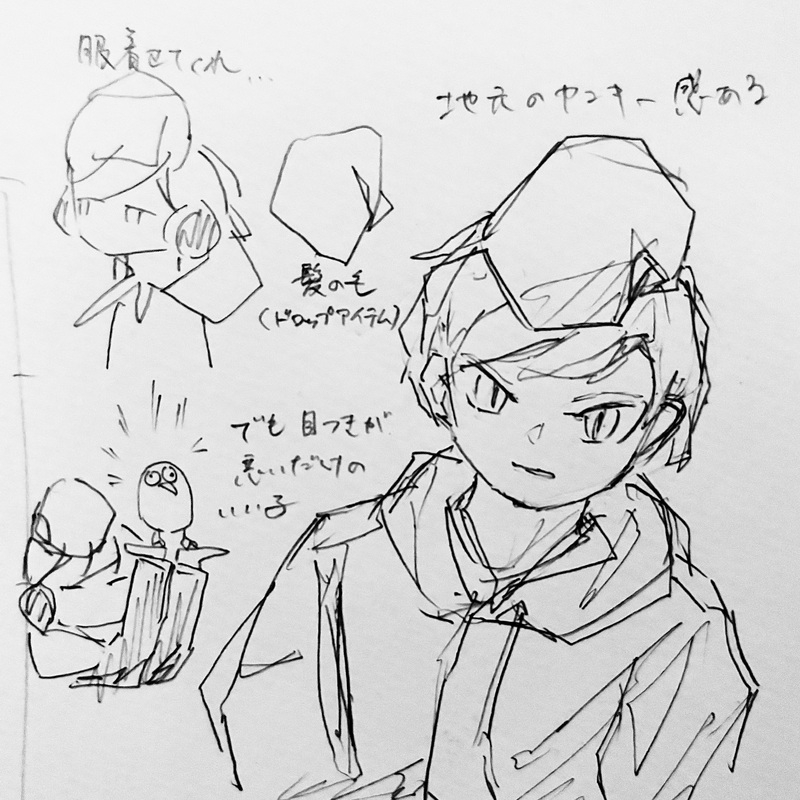 服着せてくれ...
地元のヤンキー感ある
髪の毛
(ドロップアイテム)
でも目つきが
悪いだけの
いい子